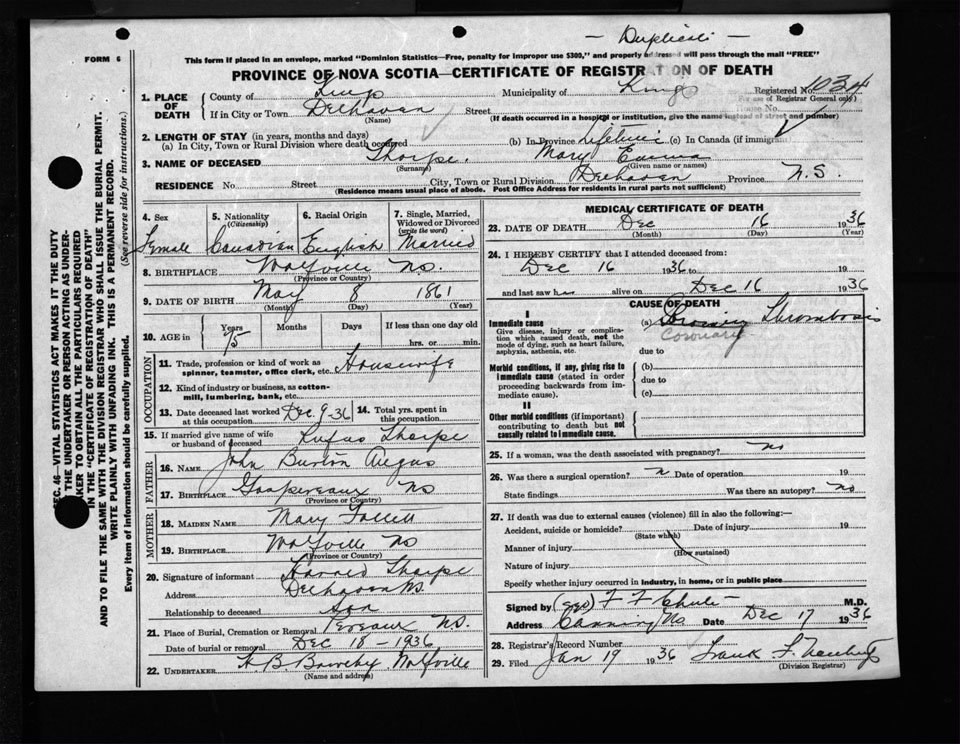 — Duplicate —
FORM 6
This form if placed in an envelope, marked "Dominion Statistics—Free, penalty for improper use $300," and properly addressed will pass through the mail "FREE"
PROVINCE OF NOVA SCOTIA—CERTIFICATE OF REGISTRATION OF DEATH
1. PLACE OF DEATH County of Kings Municipality of Kings Registered No.
(For use of Registrar General only)
If in City or Town Delhaven Street House No.
(Name) (If death occurred in a hospital or institution, give the name instead of street and number)
2. LENGTH OF STAY (in years, months and days)
(a) In City, Town or Rural Division where death occurred (b) In Province Lifetime (c) In Canada (if immigrant)
3. NAME OF DECEASED Thorpe. Mary Emma
(Surname) (Given name or names)
RESIDENCE No. Street City, Town or Rural Division Delhaven Province N.S.
(Residence means usual place of abode. Post Office Address for residents in rural parts not sufficient)
4. Sex 5. Nationality (Citizenship) 6. Racial Origin 7. Single, Married, Widowed or Divorced (write the word)
Female Canadian English Married
8. BIRTHPLACE Wolfville NS.
(Province or Country)
9. DATE OF BIRTH May 8 1861
(Month) (Day) (Year)
10. AGE in Years Months Days If less than one day old
75 hrs. or min.
OCCUPATION
11. Trade, profession or kind of work as spinner, teamster, office clerk, etc. Housewife
12. Kind of industry or business, as cotton-mill, lumbering, bank, etc.
13. Date deceased last worked at this occupation Dec 9-36 14. Total yrs. spent in this occupation
15. If married give name of wife or husband of deceased Rufus Thorpe
FATHER
16. NAME John Burton Angus
17. BIRTHPLACE Gaspereaux NS
(Province or Country)
MOTHER
18. MAIDEN NAME Mary
19. BIRTHPLACE Wolfville NS
(Province or Country)
20. Signature of informant Harold Thorpe
Address Delhaven NS.
Relationship to deceased Son
21. Place of Burial, Cremation or Removal Pereaux N.S.
Date of burial or removal Dec 18 - 1936
22. UNDERTAKER H B Wolfville
(Name and address)
MEDICAL CERTIFICATE OF DEATH
23. DATE OF DEATH Dec 16 1936
(Month) (Day) (Year)
24. I HEREBY CERTIFY that I attended deceased from:
Dec 16 1936 to 19
and last saw h alive on Dec 16 1936
CAUSE OF DEATH
I
Immediate cause (a) Thrombosis
Coronary
Give disease, injury or complication which caused death, not the mode of dying, such as heart failure, asphyxia, asthenia, etc.
due to
Morbid conditions, if any, giving rise to immediate cause (stated in order proceeding backwards from immediate cause).
(b)
due to
(c)
II
Other morbid conditions (if important) contributing to death but not causally related to immediate cause.
25. If a woman, was the death associated with pregnancy? no
26. Was there a surgical operation? n Date of operation 19
State findings Was there an autopsy? no
27. If death was due to external causes (violence) fill in also the following:—
Accident, suicide or homicide? Date of injury 19
(State which)
Manner of injury
(How sustained)
Nature of injury
Specify whether injury occurred in industry, in home, or in public place
Signed by (sgd) F F Chute M.D.
Address Canning NS Date Dec 17 1936
28. Registrar's Record Number
29. Filed Jan 19 1936 Frank
(Division Registrar)
SEC. 46—VITAL STATISTICS ACT MAKES IT THE DUTY
OF THE UNDERTAKER OR PERSON ACTING AS UNDER-
TAKER TO OBTAIN ALL THE PARTICULARS REQUIRED
IN THE "CERTIFICATE OF REGISTRATION OF DEATH"
AND TO FILE THE SAME WITH THE DIVISION REGISTRAR WHO SHALL ISSUE THE BURIAL PERMIT.
WRITE PLAINLY WITH UNFADING INK. THIS IS A PERMANENT RECORD.
Every item of information should be carefully supplied. (See reverse side for instructions.)